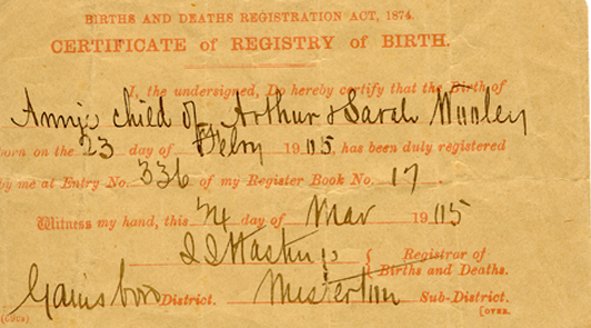 BIRTHS AND DEATHS REGISTRATION ACT, 1874.
CERTIFICATE of REGISTRY of BIRTH.
I, the undersigned, Do hereby certify that the Birth of
Annie child of Arthur & Sarah
born on the 23 day of Feby 1905, has been duly registered
by me at Entry No. 336 of my Register Book No. 17.
Witness my hand, this day of Mar 1905
Registrar of
Births and Deaths.
Gainsboro District. Misterton Sub-District.
[OVER.